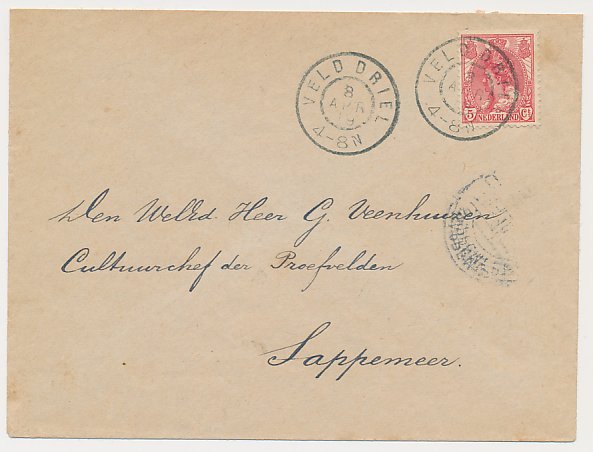 VELD DRIEL
8
APR
19
4-8N
VELD DRIEL
8
4-8N
5 Ct
NEDERLAND
Den WelEd. Heer G. Veenhuizen
Cultuurchef der Proefvelden
Sappemeer.